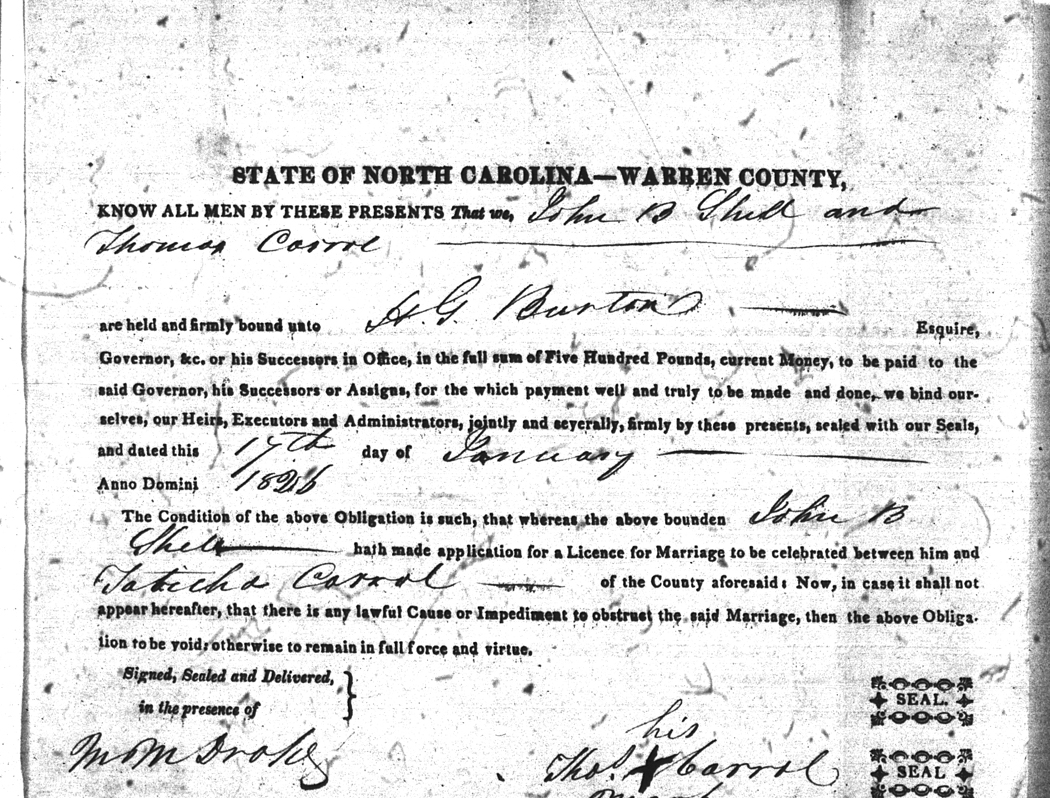 STATE OF NORTH CAROLINA—WARREN COUNTY,
KNOW ALL MEN BY THESE PRESENTS That we, John B Shell and
Thomas Carrol
are held and firmly bound unto H. G. Burton Esquire,
Governor, &c. or his Successors in Office, in the full sum of Five Hundred Pounds, current Money, to be paid to the
said Governor, his Successors or Assigns, for the which payment well and truly to be made and done, we bind our-
selves, our Heirs, Executors and Administrators, jointly and severally, firmly by these presents, sealed with our Seals,
and dated this 17th day of January
Anno Domini 1826
The Condition of the above Obligation is such, that whereas the above bounden John B
Shell hath made application for a Licence for Marriage to be celebrated between him and
Tabitha Carrol of the County aforesaid: Now, in case it shall not
appear hereafter, that there is any lawful Cause or Impediment to obstruct the said Marriage, then the above Obliga-
tion to be void; otherwise to remain in full force and virtue.
Signed, Sealed and Delivered,
in the presence of
SEAL.
his
M M Drake
Thos. X Carrol
SEAL
mark